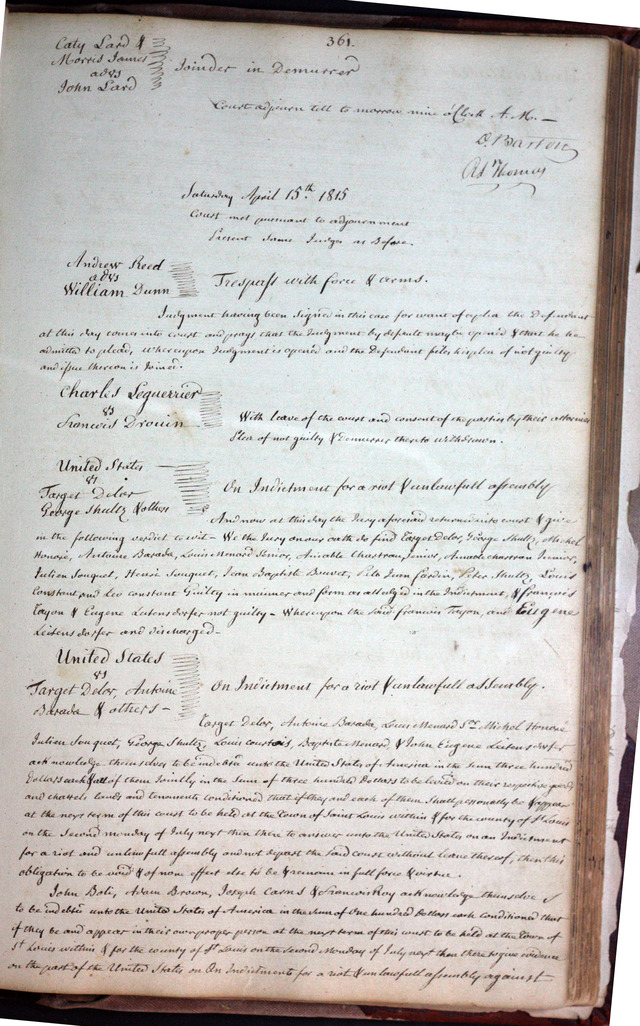 361.
Caty Lard &
Morris James
advs
John Lard
Joinder in Demurrer
Court adjourn till to morrow nine oClock A.M. —
D. Barton
Saturday April 15th 1815
Court met pursuant to adjournment
Present Same Judges as Before.
Andrew Reed
advs
William Dunn
Trespass with force & arms.
Judgment having been signed in this case for want of a plea the Defendant
at this day comes into court and prays that the Judgment by default may be opened & that he be
admitted to plead, whereupon Judgment is opened and the Defendant files his plea of not guilty
and issue thereon is Joined.
Charles
vs
Francois Drouin
With leave of the court and consent of the parties by their attornies
Plea of not guilty & Demurrer thereto withdrawn.
United States —
vs
Target Delor
George Shultz & others
On Indictment for a riot & unlawfull assembly
And now at this day the Jury aforesaid returned into court & give
in the following verdict to wit - We the Jury on our oath do find Target Delor, George Shultz, Michel
Honoré, Antoine Barada, Louis Menard Senior, Amable Chartran Senior, Amable chartran Junior,
Julien Souquet, Henri Souquet, Jean Baptiste Bouvet, Jean Cardin, Peter Shultz, Louis
Constant and Leo constant Guilty in manner and form as alledged in the Indictment, & François
Tayon & Eugene Leitensdorfer not guilty - Whereupon the said Francois Tayon, and Eugene
Leitensdorfer are discharged -
United States
vs
Target Delor, Antoine
Barada & others —
On Indictment for a riot & unlawfull assembly.
Target Delor, Antoine Barada, Louis Menard Sr. Michel Honoré
Julien Souquet, George Shultz, Louis Baptiste Menard, & John Eugene Leitensdorfer
acknowledge themselves to be indebted unto the United States of America in the Sum three hundred
Dollars each & all of them Jointly in the Sum of three hundred Dollars to be levied on their respective goods
and chattels lands and tenements conditioned that if they and each of them Shall personally be & appear
at the next term of this court to be held at the Town of Saint Louis within & for the county of St Louis
on the Second monday of July next then there to answer unto the United States on an Indictment
for a riot and unlawfull assembly and not depart the Said court without leave thereof, then this
obligation to be void & of none effect else to be & remain in full force & virtue.
John Boli, Adam Brown, Joseph & Francois Roy acknowledge themselves
to be indebted unto the United States of America in the Sum of One hundred Dollars each Conditioned that
if they be and appear in their own proper person at the next term of this court to be held at the Town of
St Louis within & for the county of St Louis on the Second Monday of July next then there to give evidence
on the part of the United States on On Indictments for a riot & unlawfull assembly against